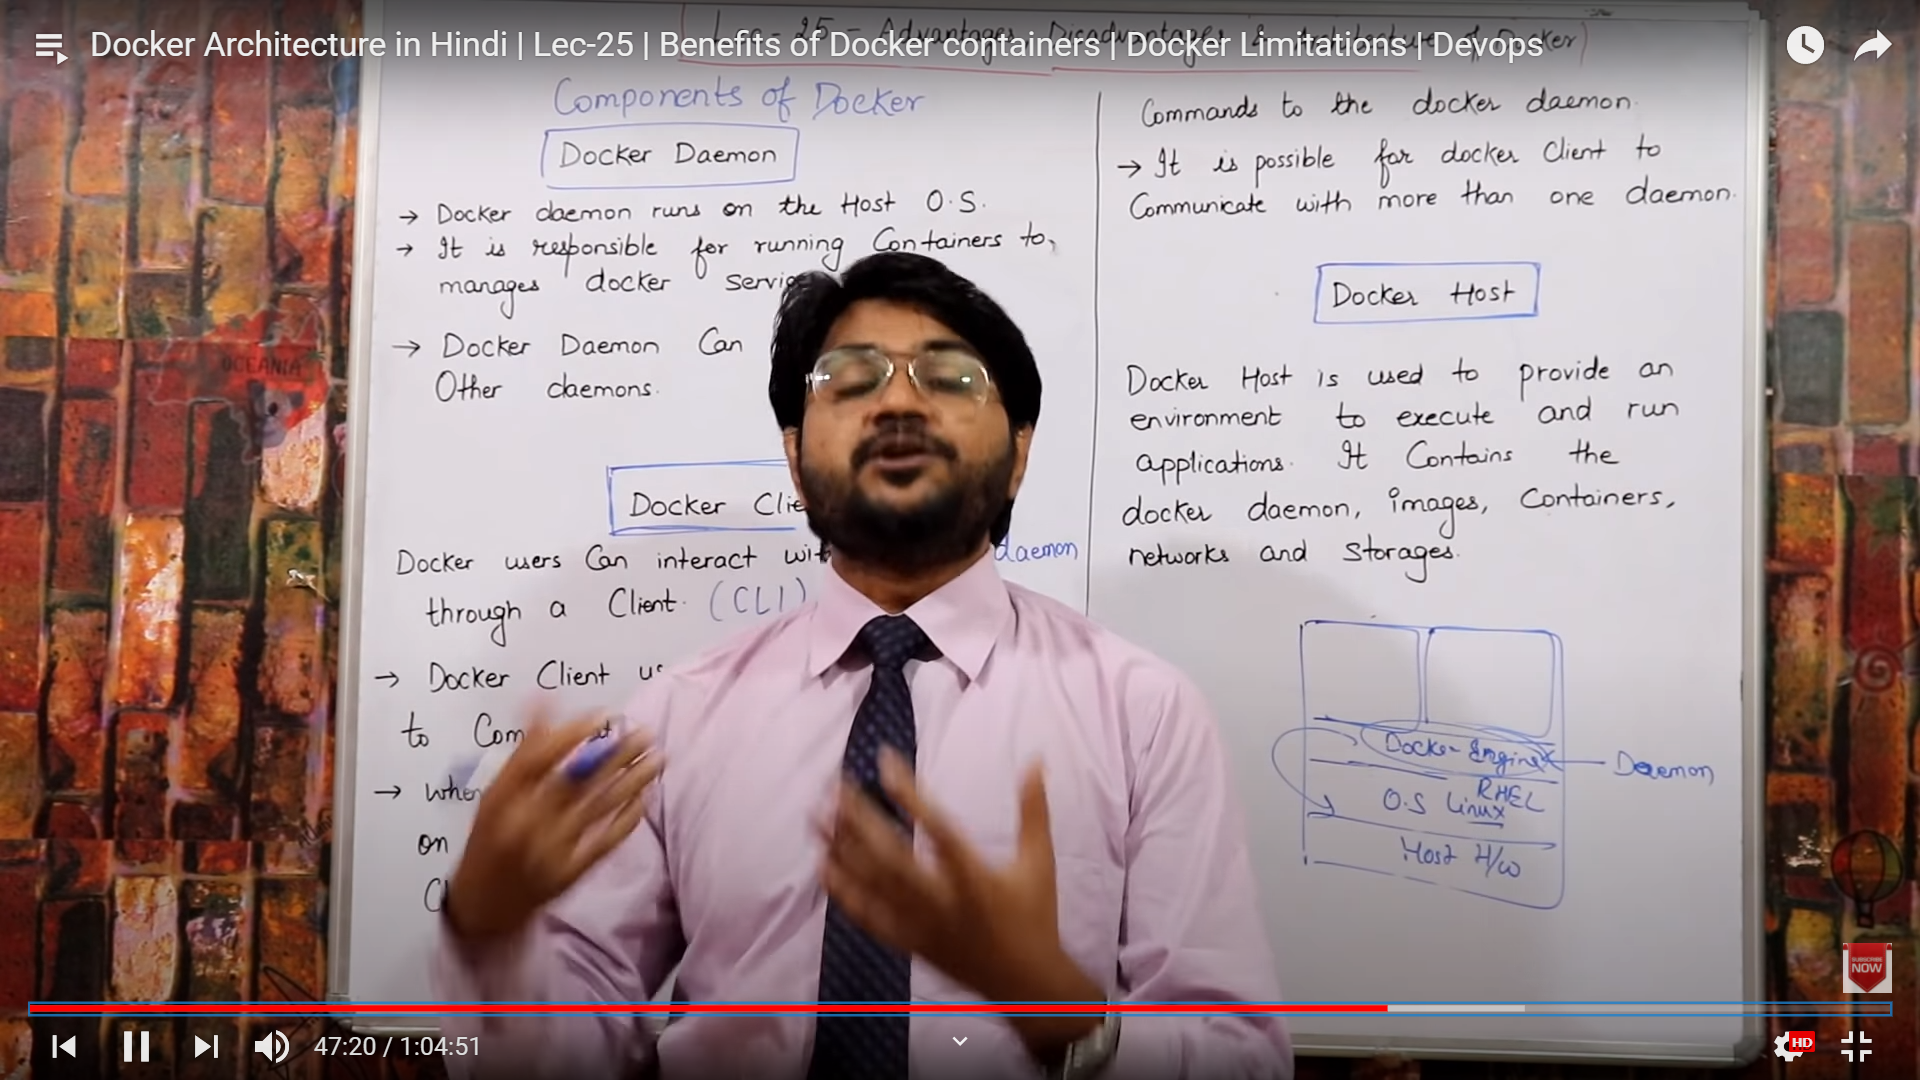 Docker Architecture in Hindi | Lec-25 | Benefits of Docker containers | Docker Limitations | Devops
Lec-25 - Advantages, Disadvantages & Architecture of Docker
Components of Docker
Docker Daemon
→ Docker daemon runs on the Host O.S.
→ It is responsible for running Containers to,
manages docker
→ Docker Daemon Can
Other daemons.
Docker
Docker users Can interact daemon
through a Client. (CLI)
→ Docker Client
to
→
on
Commands to the docker daemon.
→ It is possible for docker Client to
Communicate with more than one daemon.
Docker Host
Docker Host is used to provide an
environment to execute and run
applications. It Contains the
docker daemon, images, Containers,
networks and Storages.
Docker Engine
Daemon
RHEL
O.S Linux
Host H/W
OCEANIA
SUBSCRIBE
NOW
47:20 / 1:04:51
HD